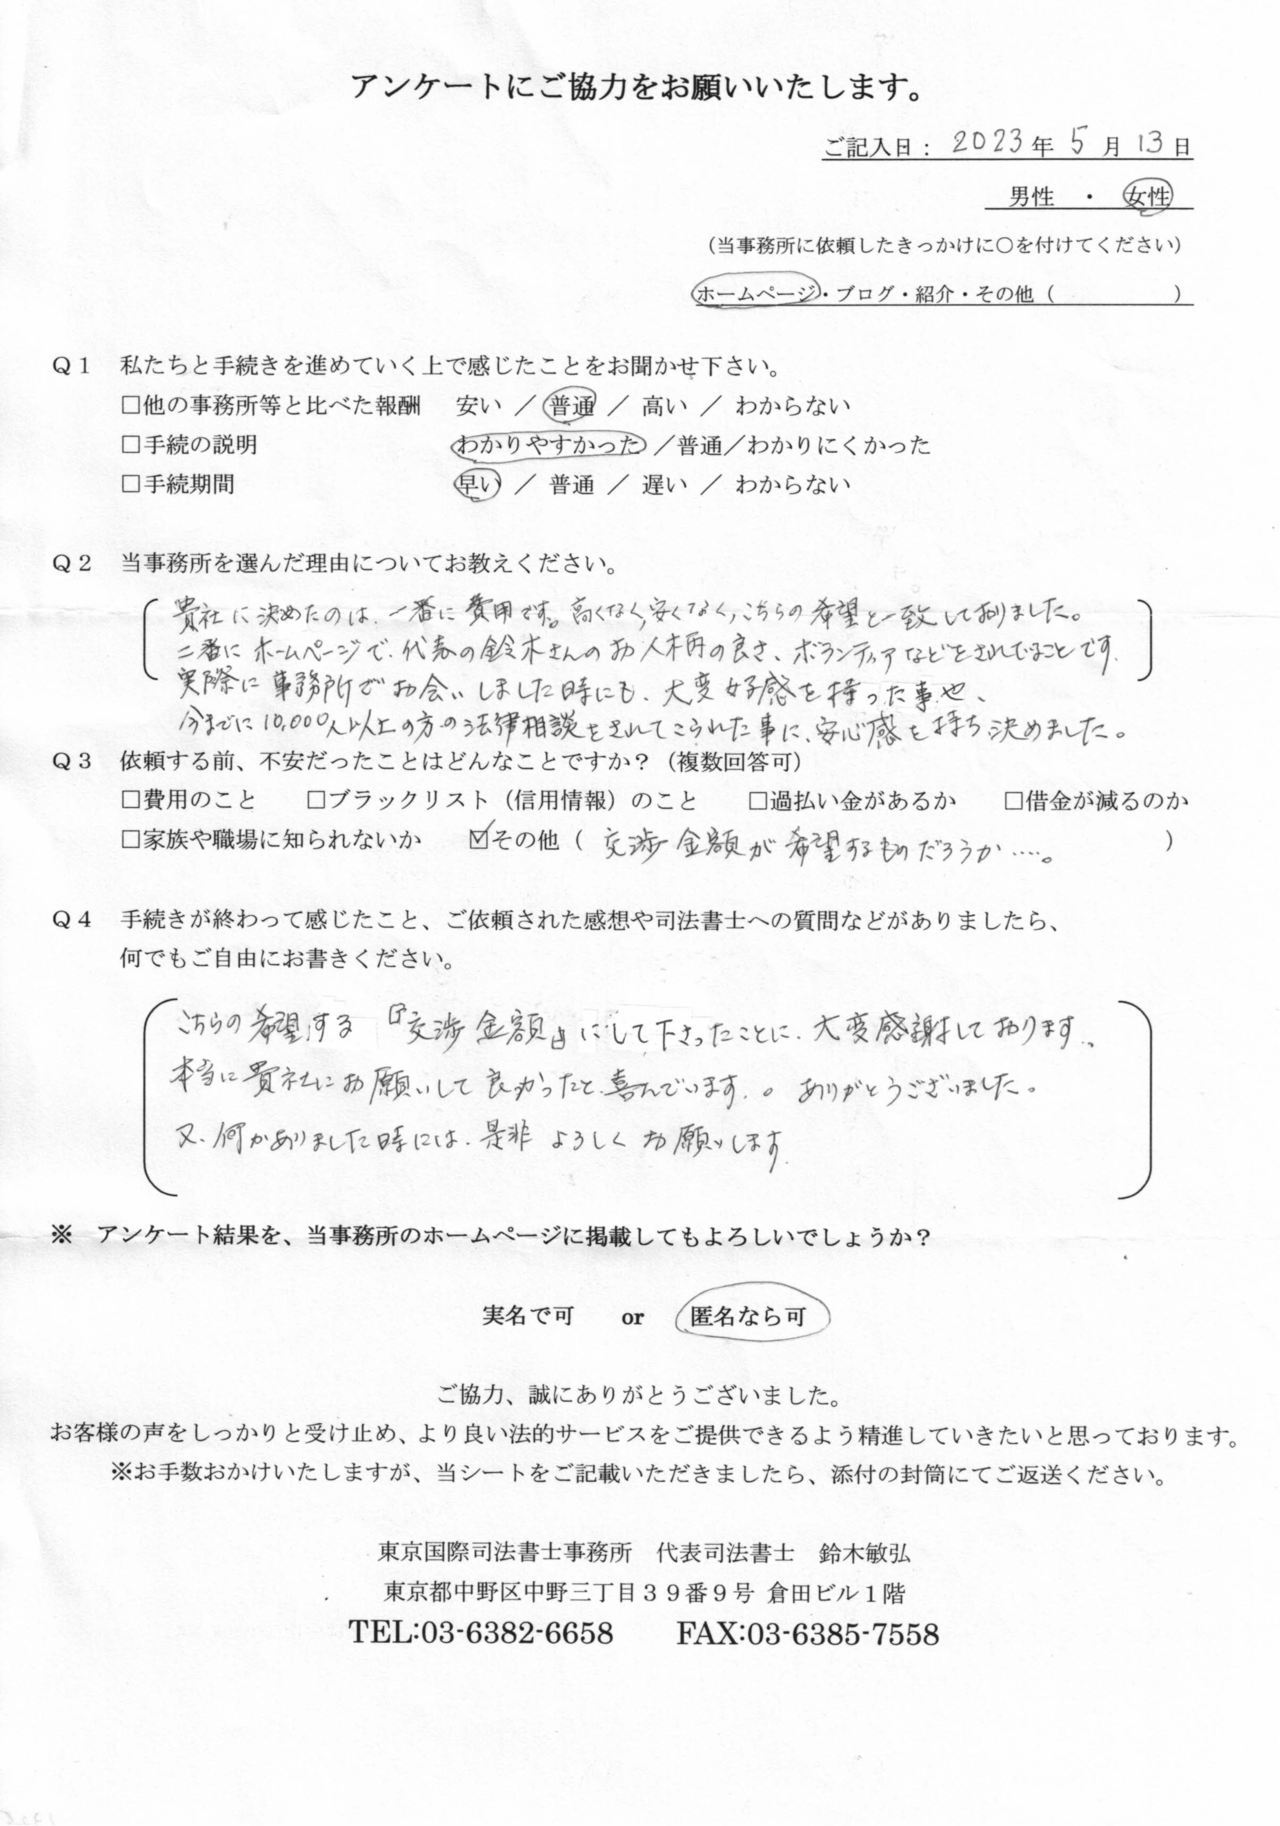 アンケートにご協力をお願いいたします。
ご記入日： 2023年 5 月 13 日
男性 ・ 女性
（当事務所に依頼したきっかけに〇を付けてください）
ホームページ・ブログ・紹介・その他（ ）
Q1 私たちと手続きを進めていく上で感じたことをお聞かせ下さい。
□他の事務所等と比べた報酬 安い ／ 普通 ／ 高い ／ わからない
□手続の説明 わかりやすかった ／普通／わかりにくかった
□手続期間 早い ／ 普通 ／ 遅い ／ わからない
Q2 当事務所を選んだ理由についてお教えください。
貴社に決めたのは、一番に費用です。高くなく、安くなく、こちらの希望と一致しておりました。
二番にホームページで、代表の鈴木さんのお人柄の良さ、ボランティアなどをされてることです。
実際に事務所でお会いしました時にも、大変好感を持った事や、
今までに10,000人以上の方の法律相談をされてこられた事に、安心感を持ち決めました。
Q3 依頼する前、不安だったことはどんなことですか？（複数回答可）
□費用のこと □ブラックリスト（信用情報）のこと □過払い金があるか □借金が減るのか
□家族や職場に知られないか ☑その他（ 交渉金額が希望するものだろうか‥‥。 ）
Q4 手続きが終わって感じたこと、ご依頼された感想や司法書士への質問などがありましたら、
何でもご自由にお書きください。
こちらの希望する『交渉金額』にして下さったことに、大変感謝しております。
本当に貴社にお願いして良かったと、喜んでいます。。ありがとうございました。
又、何かありました時には、是非よろしくお願いします
※ アンケート結果を、当事務所のホームページに掲載してもよろしいでしょうか？
実名で可 or 匿名なら可
ご協力、誠にありがとうございました。
お客様の声をしっかりと受け止め、より良い法的サービスをご提供できるよう精進していきたいと思っております。
※お手数おかけいたしますが、当シートをご記載いただきましたら、添付の封筒にてご返送ください。
東京国際司法書士事務所 代表司法書士 鈴木敏弘
東京都中野区中野三丁目３９番９号 倉田ビル１階
TEL:03-6382-6658 FAX:03-6385-7558